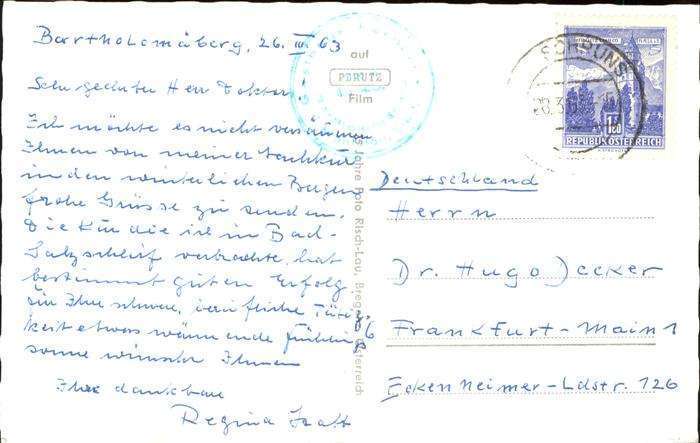 Bartholomäberg, 26. III. 63
Sehr geehrter Herr Doktor!
Ich möchte es nicht versäumen
Ihnen von meiner Nachkur
in den winterlichen Bergen
frohe Grüsse zu senden.
Die Kur die ich in Bad-
Salzschlirf verbrachte, hat
bestimmt guten Erfolg
für Ihre schwere, berufliche Tätig-
keit etwas wärmende Frühlings
sonne wünscht Ihnen
Ihre dankbare
Regina
auf
PERUTZ
Film
25 Jahre Foto Risch-Lau, Bregenz Österreich
SCHRUNS
1.80
REPUBLIK ÖSTERREICH
Deutschland
Herrn
Dr. Hugo Jecker
Frankfurt-Main 1
Eckenheimer-Ldstr. 126